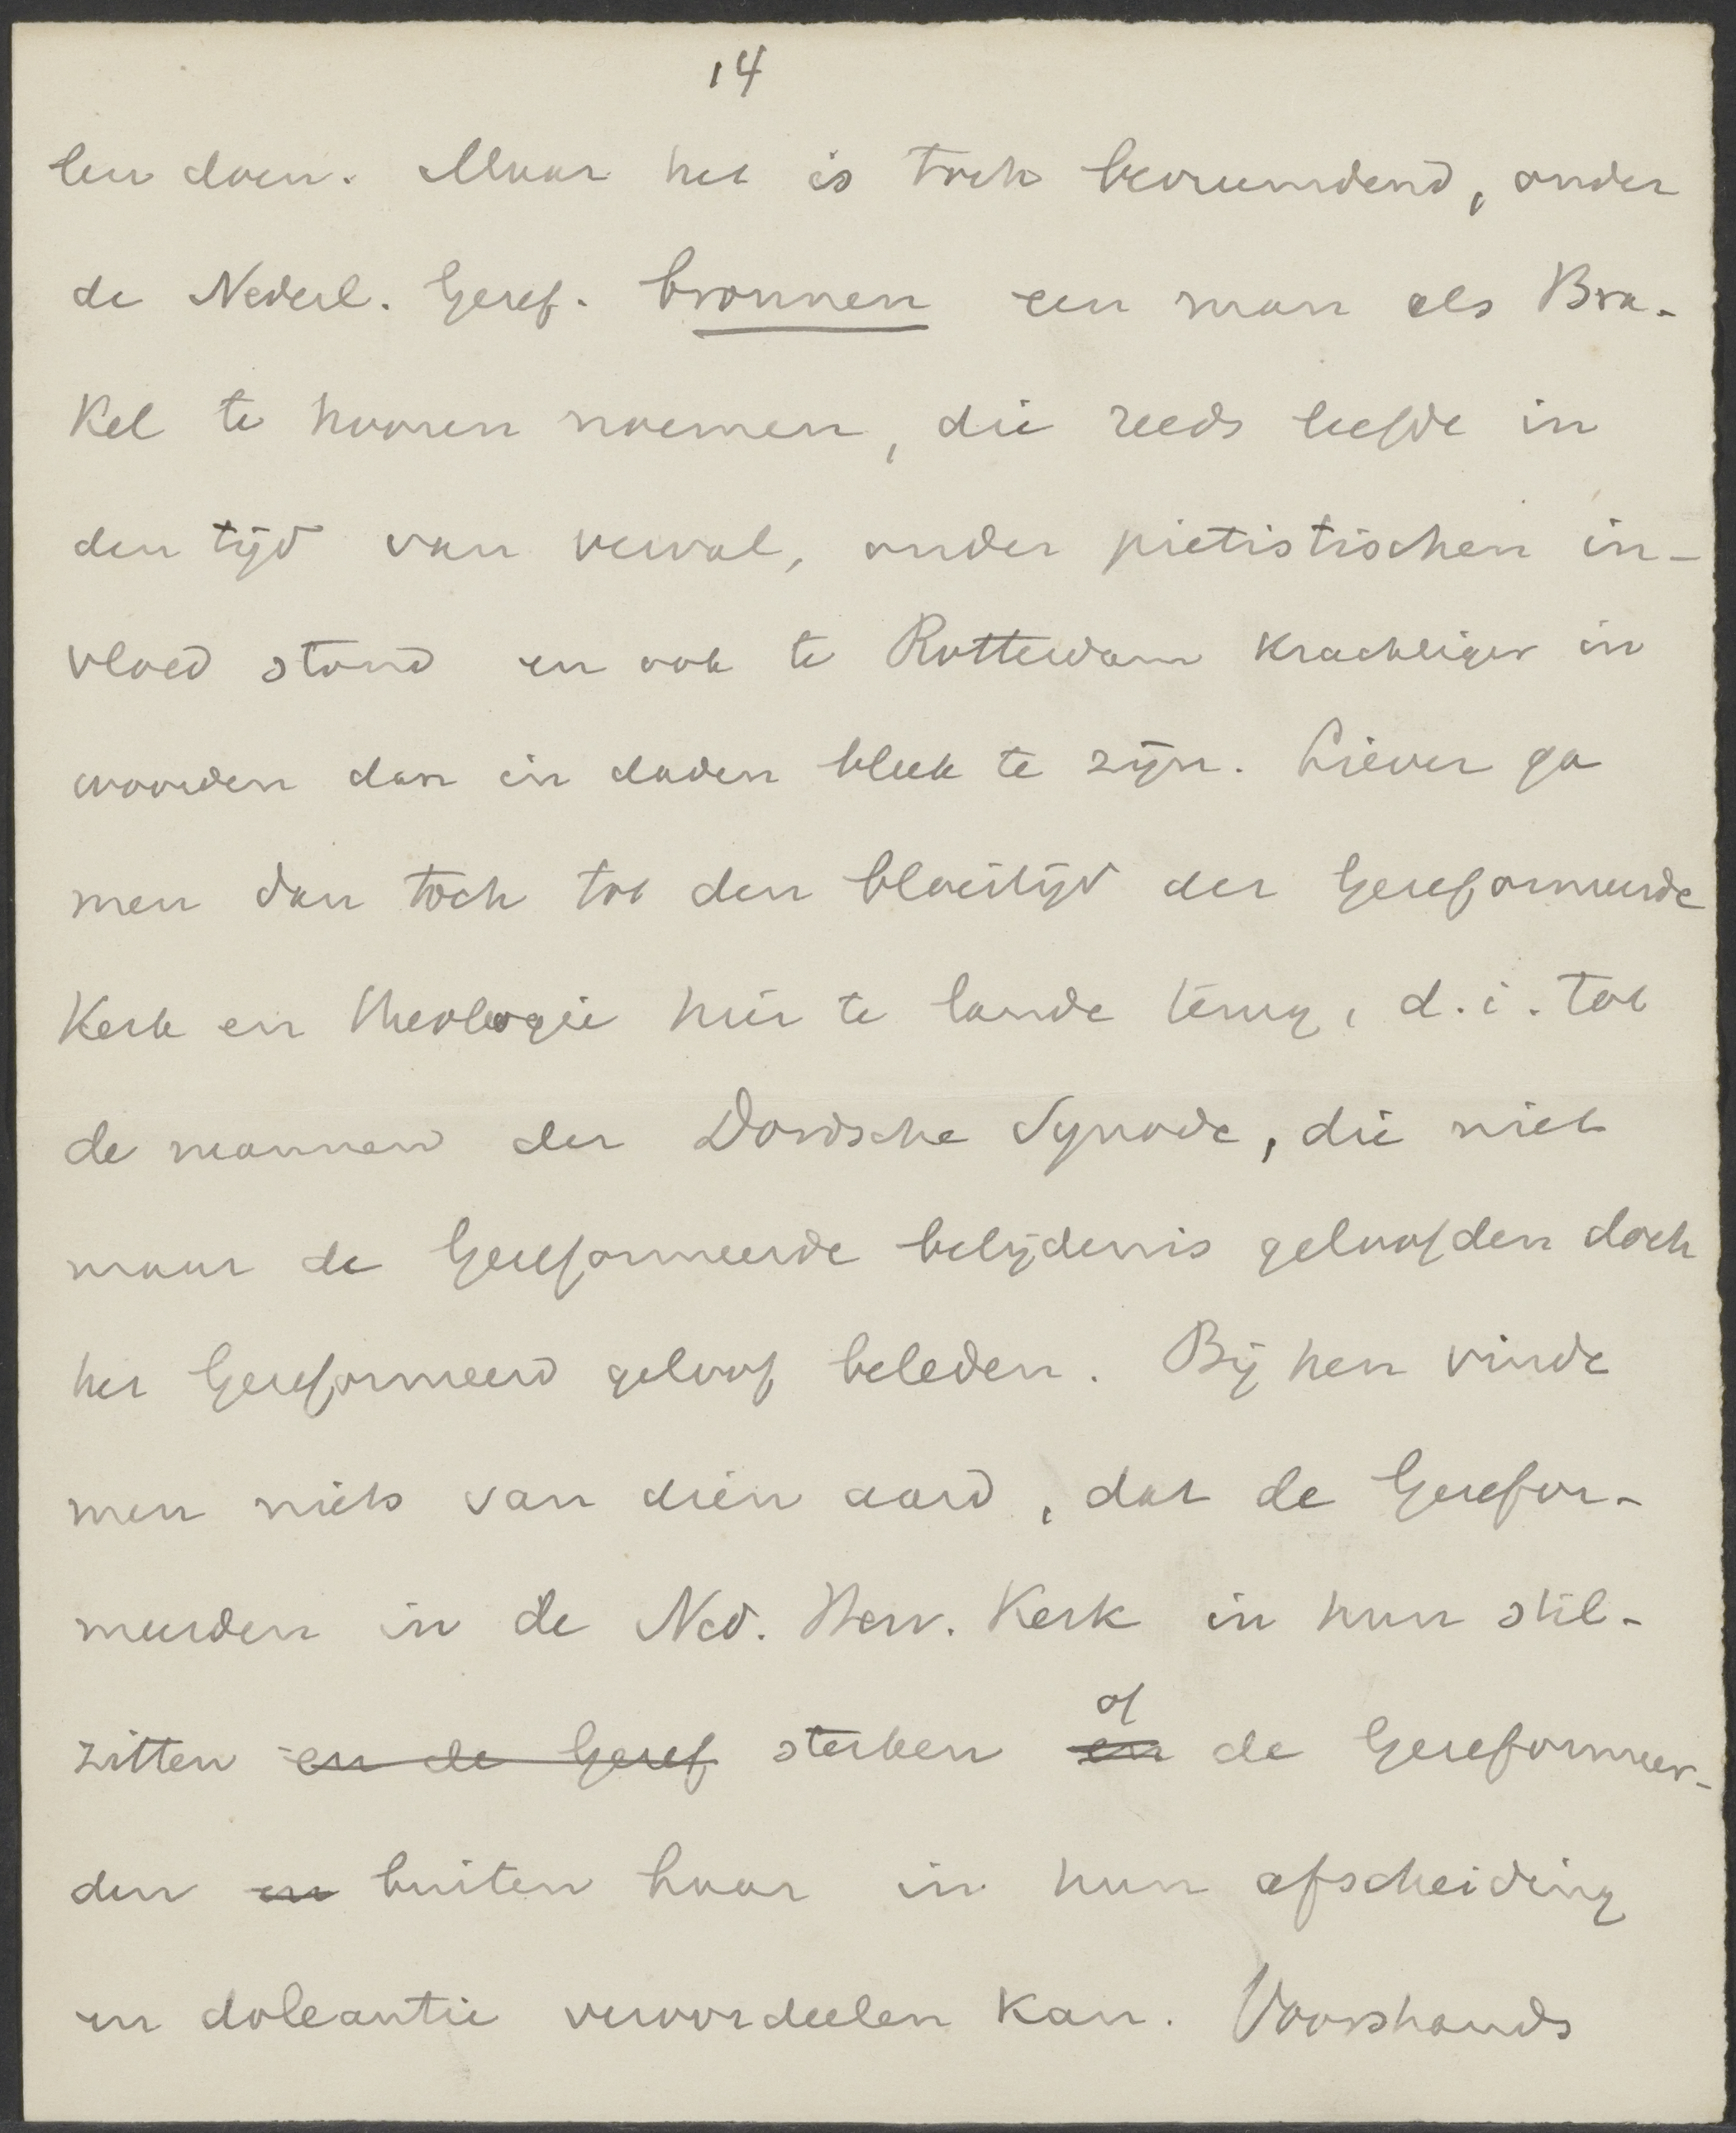 14
len doen. Maar het is toch bevreemdend, onder
de Nederl. Geref. bronnen een man als Bra-
kel te hooren noemen, die reeds leefde in
den tijd van verval, onder pietistischen in-
vloed stond en ook te Rotterdam krachtiger in
woorden dan in daden bleek te zijn. Liever ga
men dan toch tot den bloeitijd der Gereformeerde
Kerk en theologie hier te lande terug, d.i. tot
de mannen der Dordsche Synode, die niet
maar de Gereformeerde belijdenis geloofden doch
het Gereformeerd geloof beleden. Bij hen vinde
men niets van dien aard, dat de Gerefor-
meerden in de Ned. Herv. Kerk in hun stil-
zitten en de Geref sterken en of de Gereformeer-
den en buiten haar in hun afscheiding
en doleantie veroordeelen kan. Voorshands